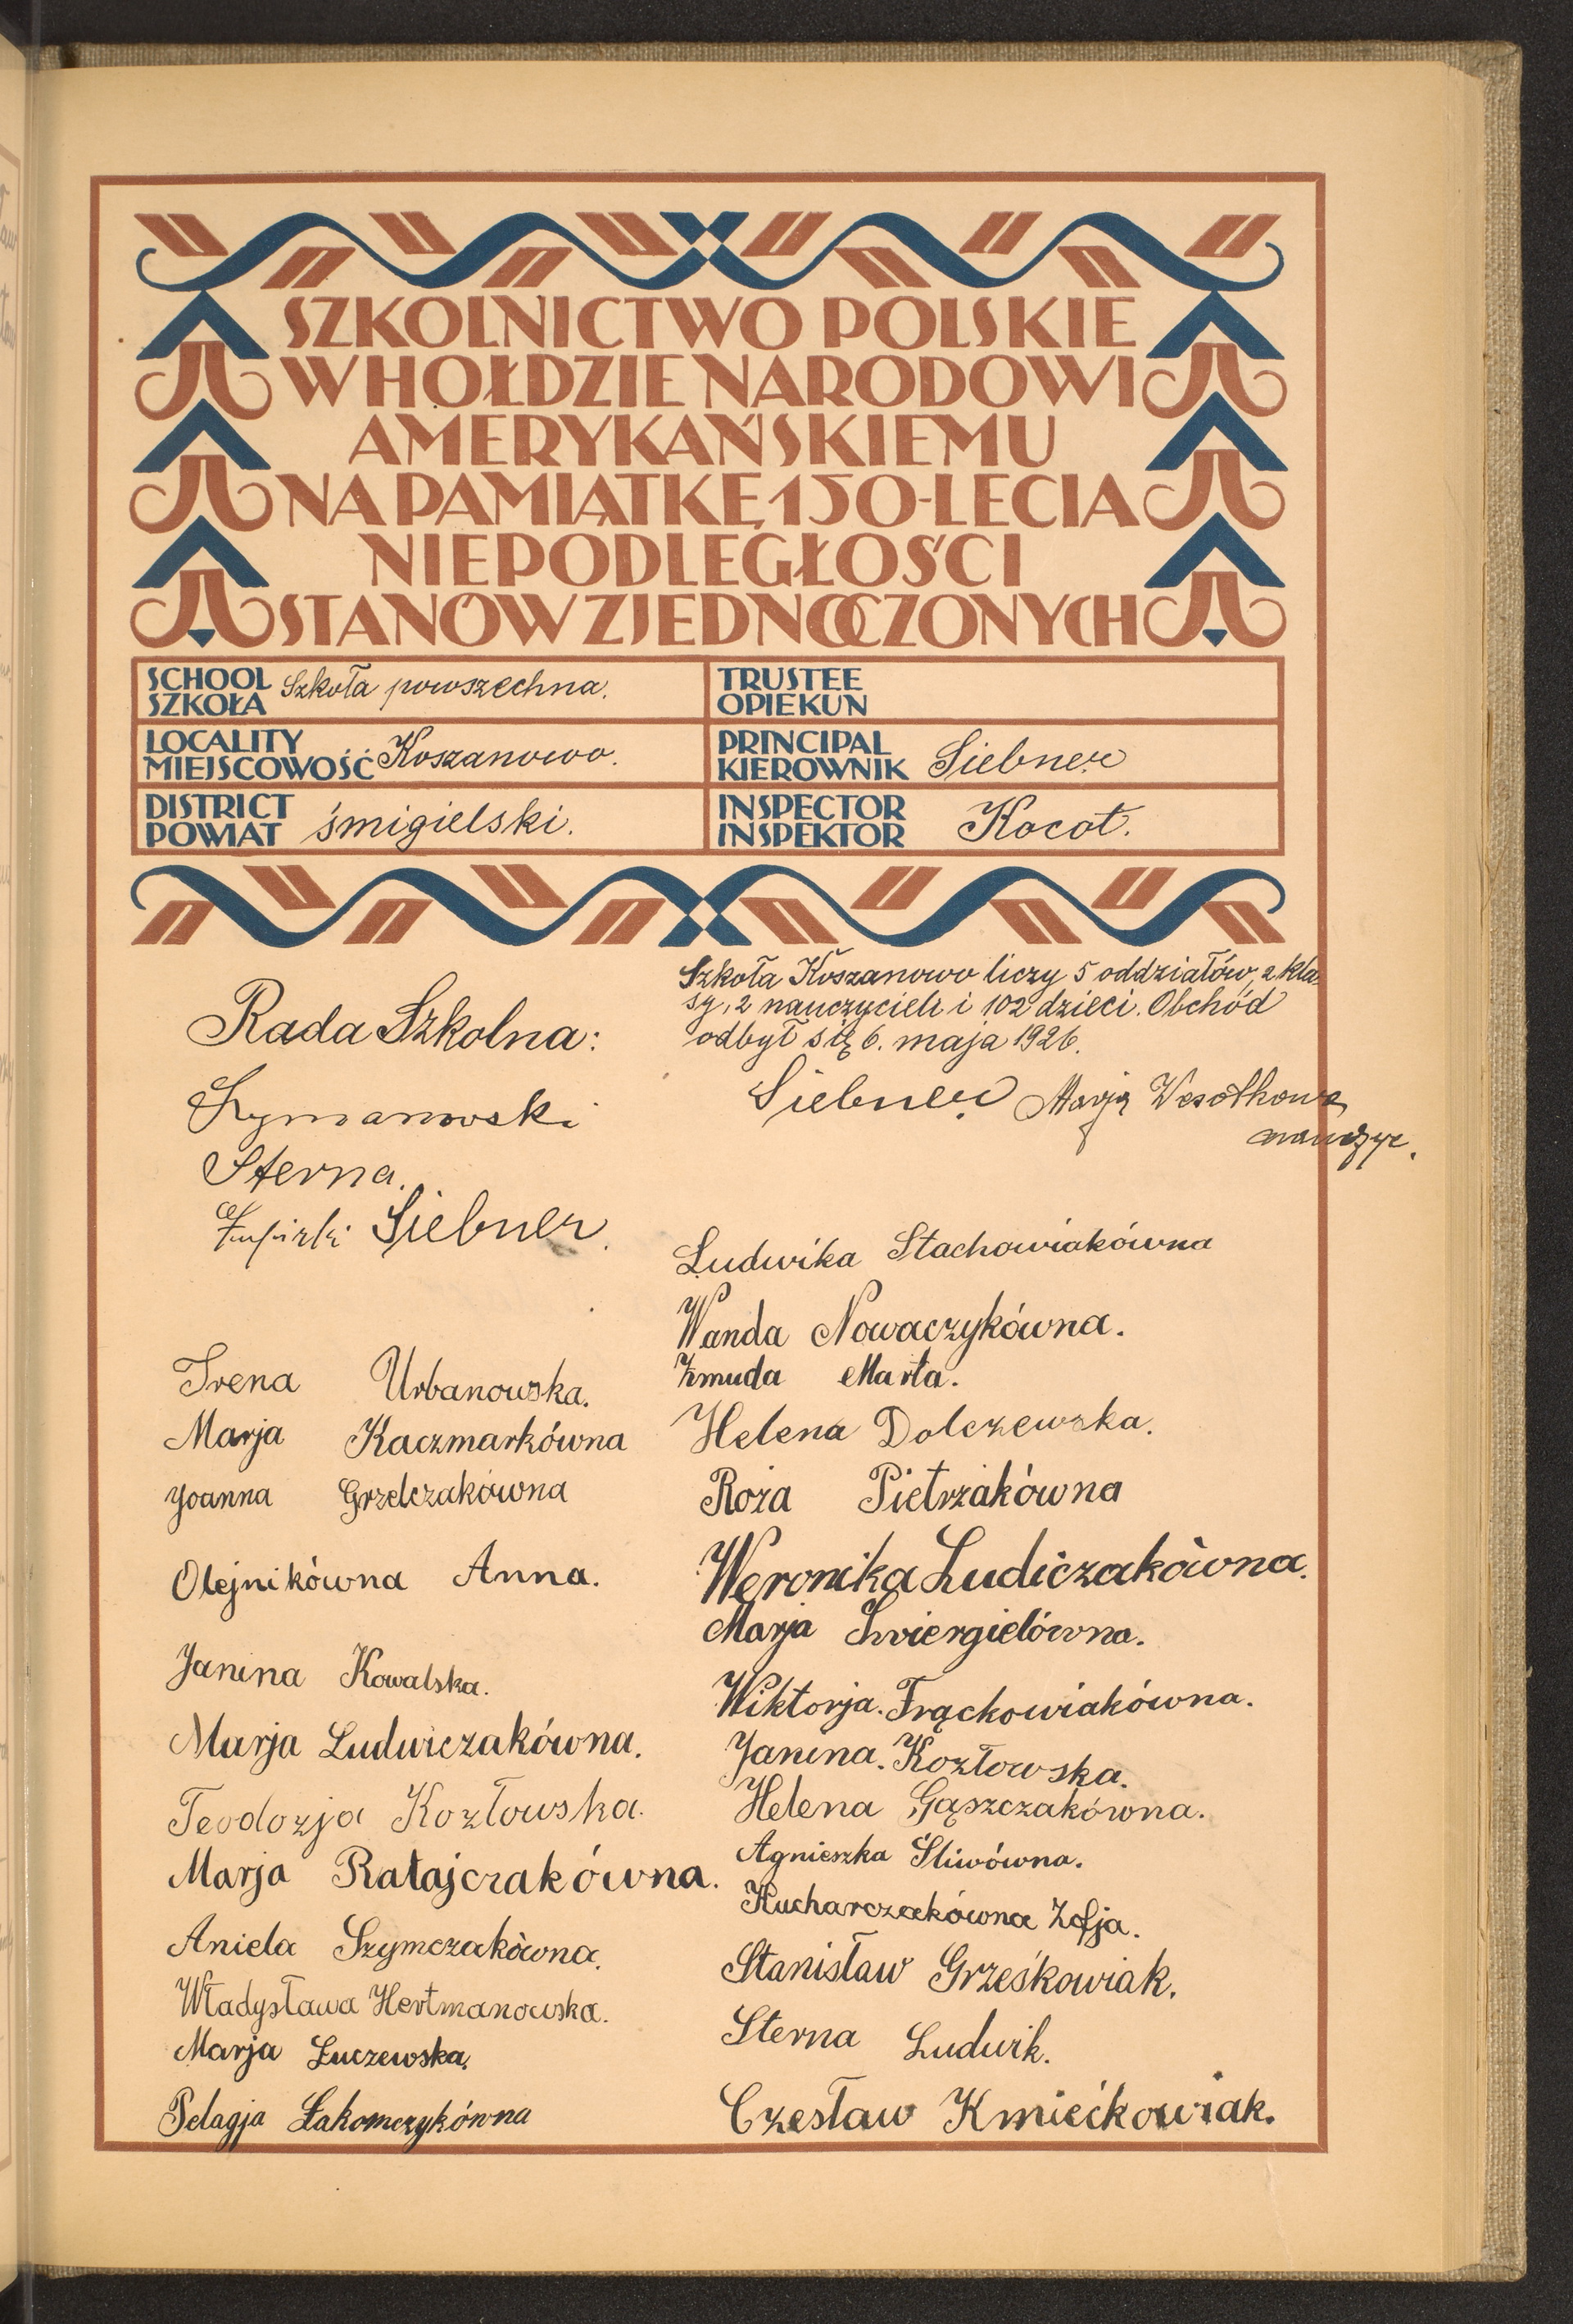 SZKOLNICTWO POLSKIE
W HOŁDZIE NARODOWI
AMERYKAŃSKIEMU
NA PAMIĄTKĘ 150-LECIA
NIEPODLEGŁOŚCI
STANÓW ZJEDNOCZONYCH
SCHOOL
SZKOŁA Szkoła powszechna.
TRUSTEE
OPIEKUN
LOCALITY
MIEJSCOWOŚĆ Koszanowo.
PRINCIPAL
KIEROWNIK Siebner
DISTRICT
POWIAT śmigielski.
INSPECTOR
INSPEKTOR Kocot.
Rada Szkolna:
Szymanowski
Sterna.
Siebner.
Szkoła Koszanowo liczy 5 oddziałów, 2 kla-
sy, 2 nauczycieli i 102 dzieci. Obchód
odbył się 6. maja 1926.
Siebner Marja Wesołkowa
nauczyc.
Irena Urbanowska.
Marja Kaczmarkówna
Joanna Grzelczakówna
Olejnikówna Anna.
Janina Kowalska.
Marja Ludwiczakówna.
Teodozja Kozłowska.
Marja Ratajczakówna.
Aniela Szymczakówna.
Władysława Hertmanowska.
Marja Łuczewska.
Pelagja Łakomczykówna
Ludwika Stachowiakówna
Wanda Nowaczykówna.
Żmuda Marta.
Helena Dolczewska.
Róża Pietrzakówna
Weronika Ludiczakówna.
Marja Świergielówna.
Wiktorja. Frąckowiakówna.
Janina. Kozłowska.
Helena Gąszczakówna.
Agnieszka Śliwówna.
Kucharczakówna Zofja.
Stanisław Grześkowiak.
Sterna Ludwik.
Czesław Kmiećkowiak.